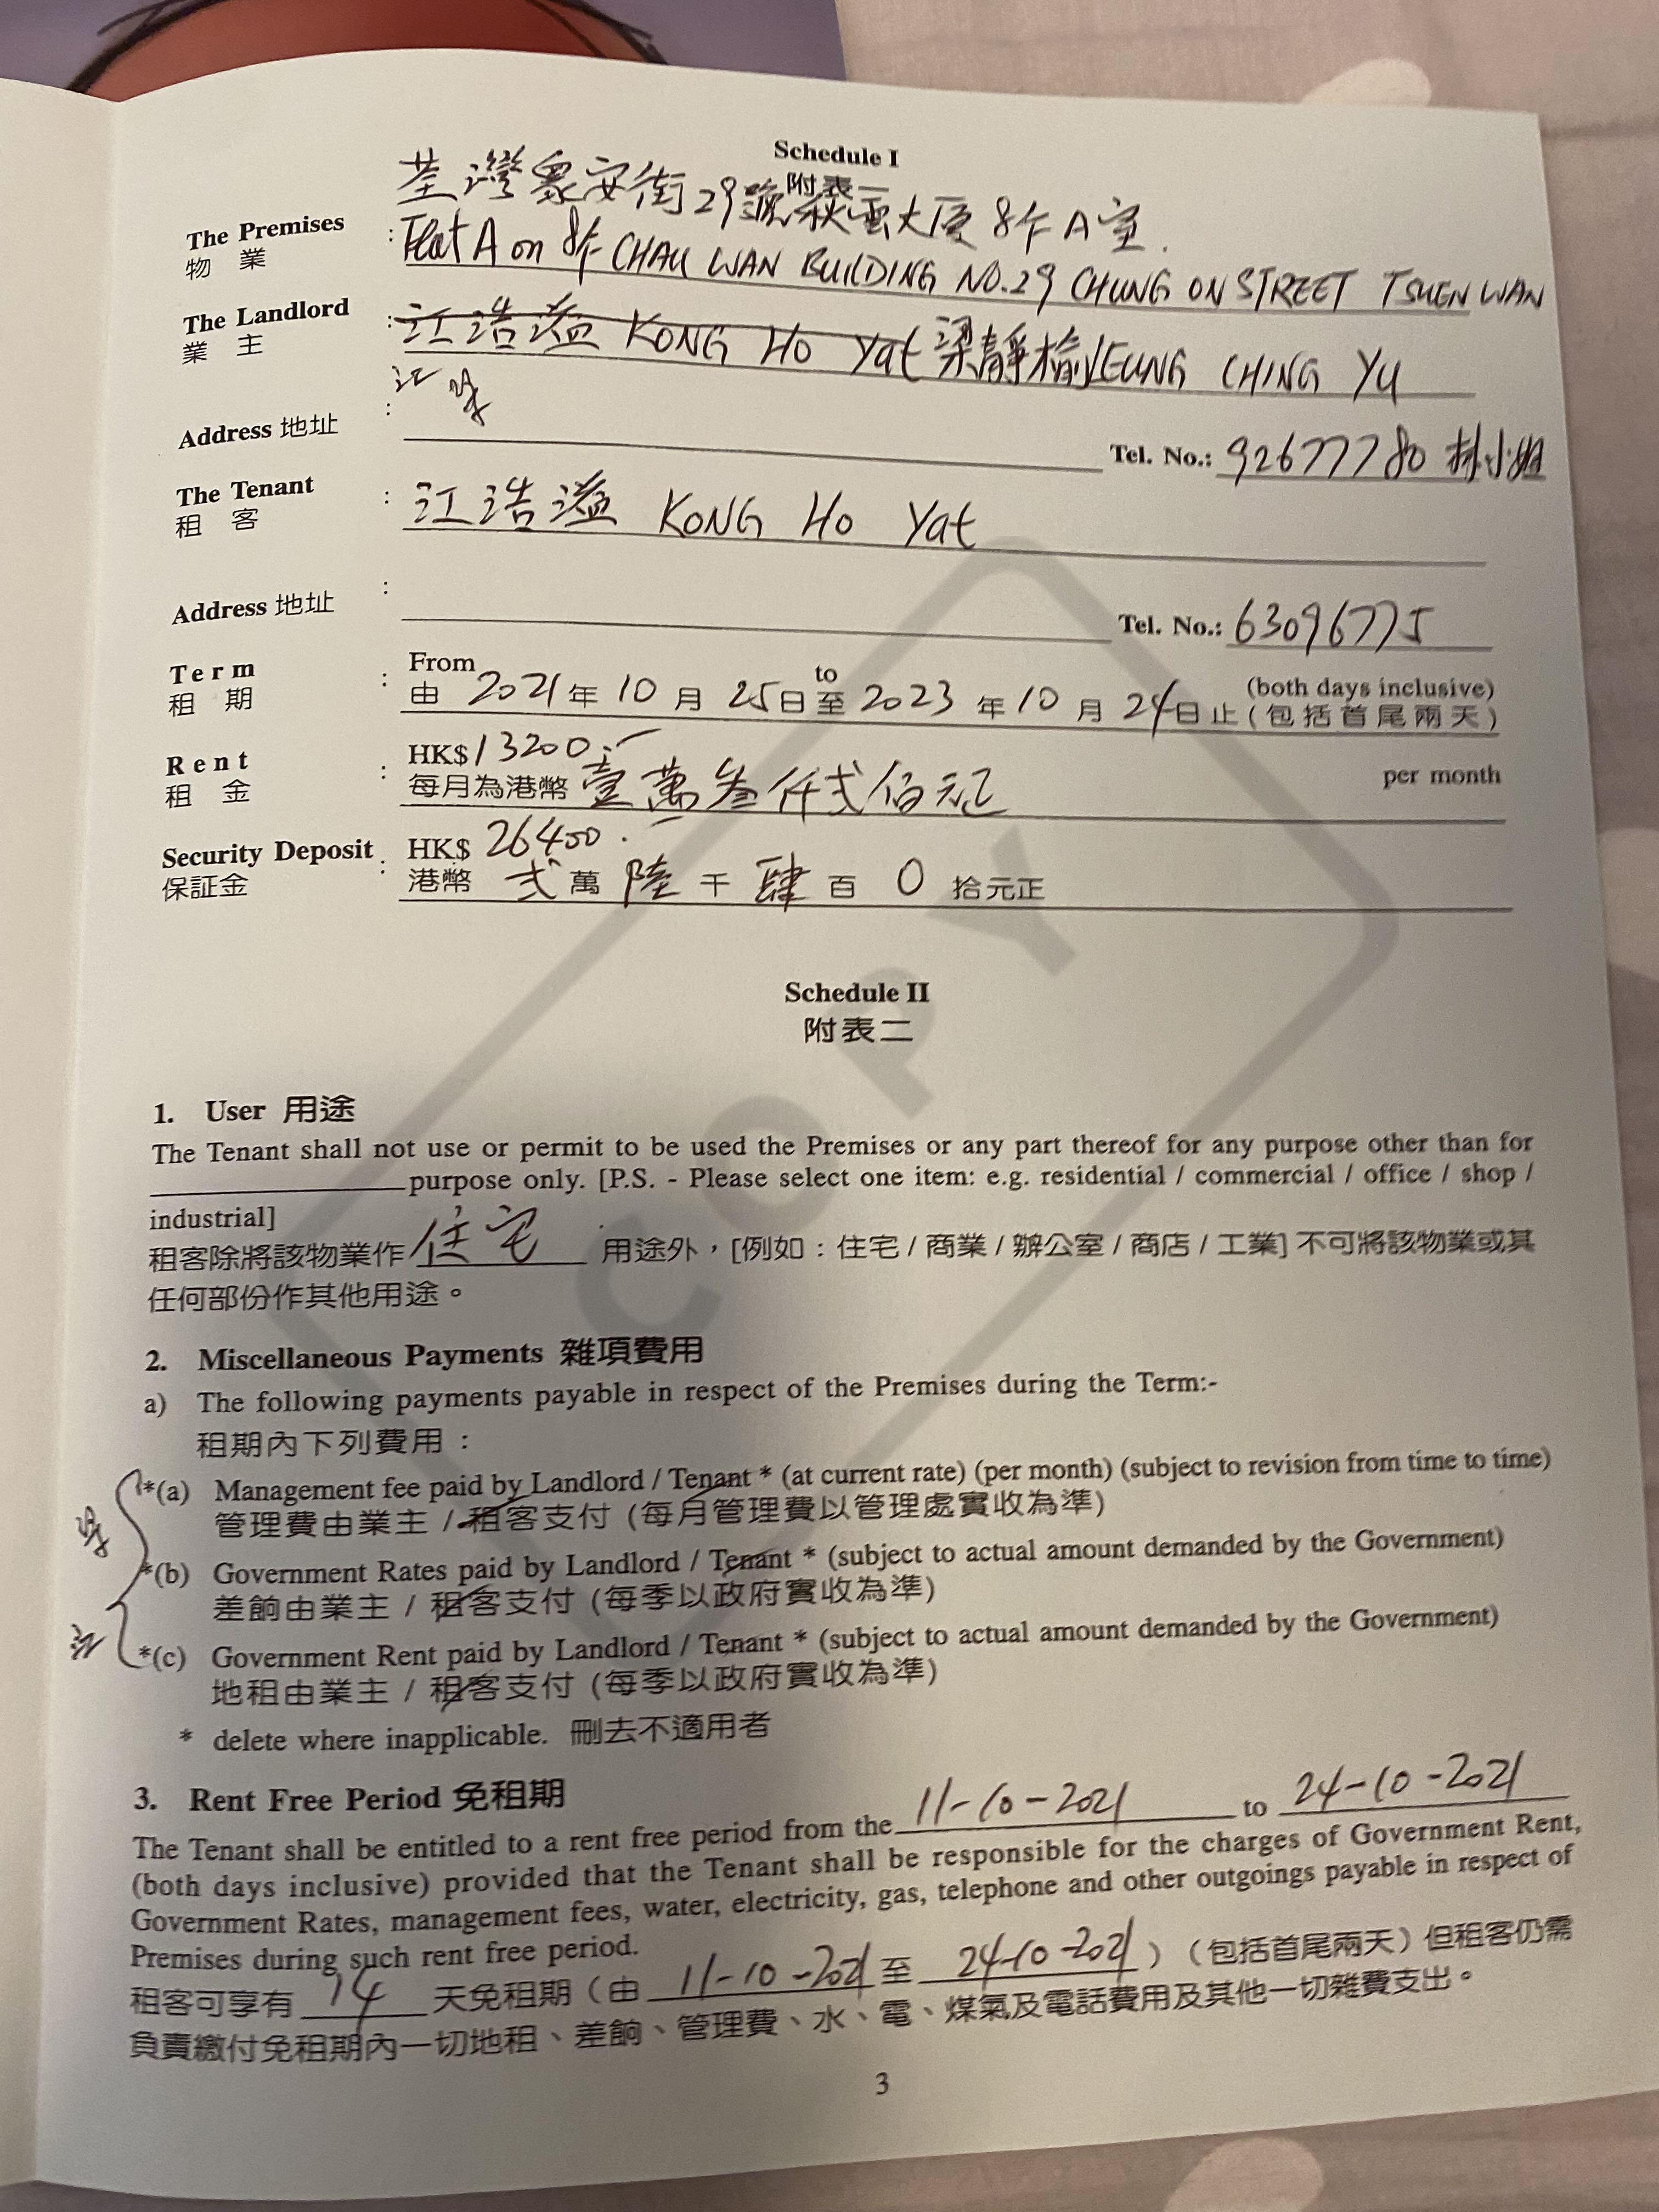 Schedule I
附表一
荃灣眾安街29號秋雲大廈8/F A室.
The Premises
物業 : Flat A on 8/F CHAU WAN BUILDING NO.29 CHUNG ON STREET TSUEN WAN
The Landlord
業主 : 江浩溢 KONG Ho Yat 梁靜榆 LEUNG CHING YU
江
Address 地址 : Tel. No.: 92677780 林小姐
The Tenant
租客 : 江浩溢 KONG Ho Yat
Address 地址 : Tel. No.: 63096775
Term From to (both days inclusive)
租期 : 由 2021 年 10 月 25 日至 2023 年 10 月 24 日止 (包括首尾兩天)
Rent : HK$ 13200.- per month
租金 每月為港幣 壹萬叁仟弍佰元正
Security Deposit : HK$ 26400.-
保証金 港幣 弍 萬 陸 千 肆 百 0 拾元正
Schedule II
附表二
1. User 用途
The Tenant shall not use or permit to be used the Premises or any part thereof for any purpose other than for
purpose only. [P.S. - Please select one item: e.g. residential / commercial / office / shop /
industrial]
租客除將該物業作 住宅 用途外，[例如：住宅 / 商業 / 辦公室 / 商店 / 工業] 不可將該物業或其
任何部份作其他用途。
2. Miscellaneous Payments 雜項費用
a) The following payments payable in respect of the Premises during the Term:-
租期內下列費用：
*(a) Management fee paid by Landlord / Tenant * (at current rate) (per month) (subject to revision from time to time)
管理費由業主 / 租客支付 (每月管理費以管理處實收為準)
*(b) Government Rates paid by Landlord / Tenant * (subject to actual amount demanded by the Government)
差餉由業主 / 租客支付 (每季以政府實收為準)
江
*(c) Government Rent paid by Landlord / Tenant * (subject to actual amount demanded by the Government)
地租由業主 / 租客支付 (每季以政府實收為準)
* delete where inapplicable. 刪去不適用者
3. Rent Free Period 免租期
The Tenant shall be entitled to a rent free period from the 11-10-2021 to 24-10-2021
(both days inclusive) provided that the Tenant shall be responsible for the charges of Government Rent,
Government Rates, management fees, water, electricity, gas, telephone and other outgoings payable in respect of
Premises during such rent free period.
租客可享有 14 天免租期 (由 11-10-2021 至 24-10-2021) (包括首尾兩天) 但租客仍需
負責繳付免租期內一切地租、差餉、管理費、水、電、煤氣及電話費用及其他一切雜費支出。
3
COPY